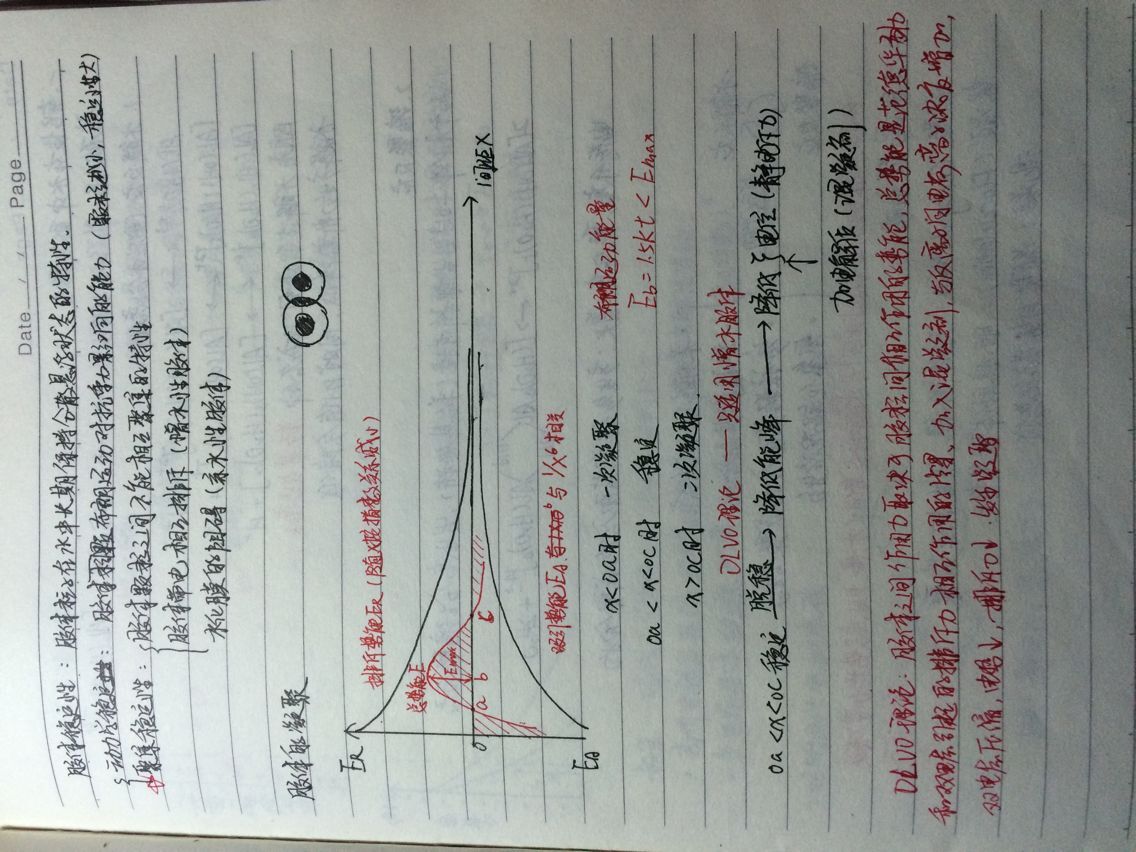 Date / / Page
胶体稳定性：胶体粒子在水中长期保持分散悬浮状态的特性.
动力学稳定性：胶体颗粒布朗运动对抗重力影响的能力（颗粒越小，稳定性大）
聚集稳定性：胶体颗粒之间不能相互聚集的特性
胶体带电相互排斥（憎水性胶体）
水化膜的阻碍（亲水性胶体）
胶体的凝聚
ER
排斥势能ER（随x按指数关系减小）
总势能E
Emax
o a b c
间距X
EA
吸引势能EA 与1/X⁶相关
x<oa时 一次凝聚
布朗运动能量
oa<x<oc时 稳定
Eb=1.5kt<Emax
x>oc时 二次凝聚.
DLVO理论——只适用憎水胶体
oa<x<oc 稳定 脱稳→降低能峰→降低ξ电位（静电斥力）
↑
加电解质（混凝剂）
DLVO理论：胶体之间作用力取决于胶粒间相互作用的势能，总势能是范德华引力
和双电层引起的排斥力相互作用的结果、加入混凝剂，与反离子同电荷离子浓度增加，
双电层压缩，电位↓，排斥力↓.